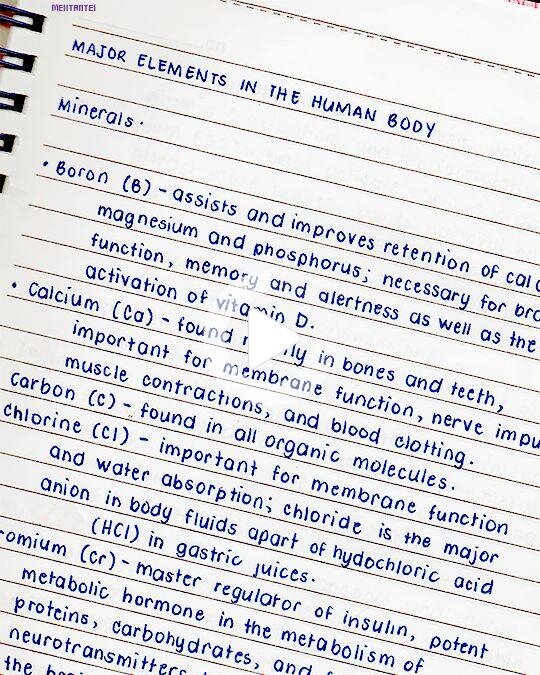 MEIITANTEI
MAJOR ELEMENTS IN THE HUMAN BODY
Minerals.
• Boron (B) - assists and improves retention of
magnesium and phosphorus; necessary for
function, memory and alertness as well as the
activation of vitamin D.
• Calcium (Ca) - found in bones and teeth,
important for membrane function, nerve
muscle contractions, and blood clotting.
Carbon (C) - found in all organic molecules.
chlorine (Cl) - important for membrane function
and water absorption; chloride is the major
anion in body fluids apart of hydochloric acid
(HCl) in gastric juices.
(Cr) - master regulator of insulin, potent
metabolic hormone in the metabolism of
proteins, carbohydrates, and
neurotransmitters
the